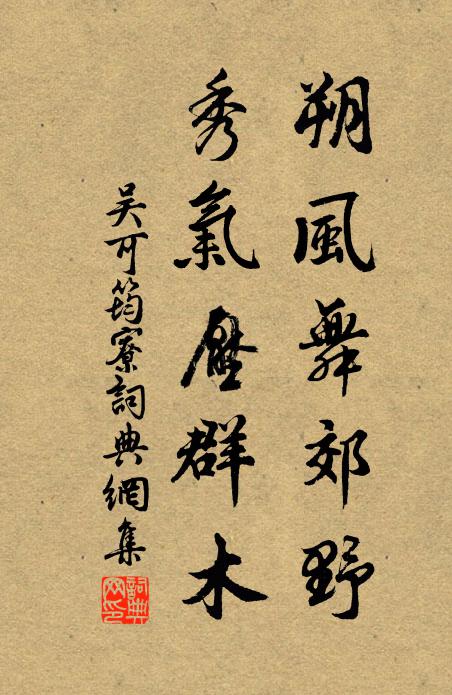 朔風舞郊野
秀氣壓群木
吴可筠寮詞典網集
詞典網印